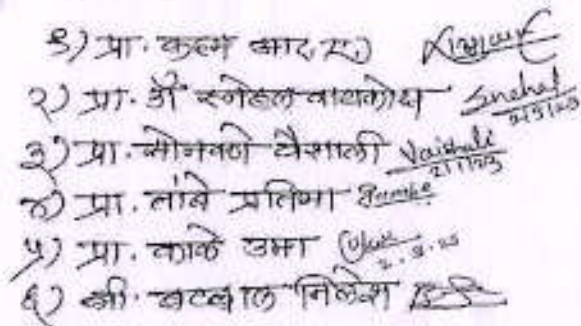 १) प्रा. कदम आर. ए.
२) प्रा. डॉ स्नेहल वाघमोडे Snehal
३) प्रा. सोनवणे वैशाली Vaishali 2/1/23
४) प्रा. तांबे प्रतिभा
५) प्रा. काके उमा
६) श्री. बटवाल निलेश